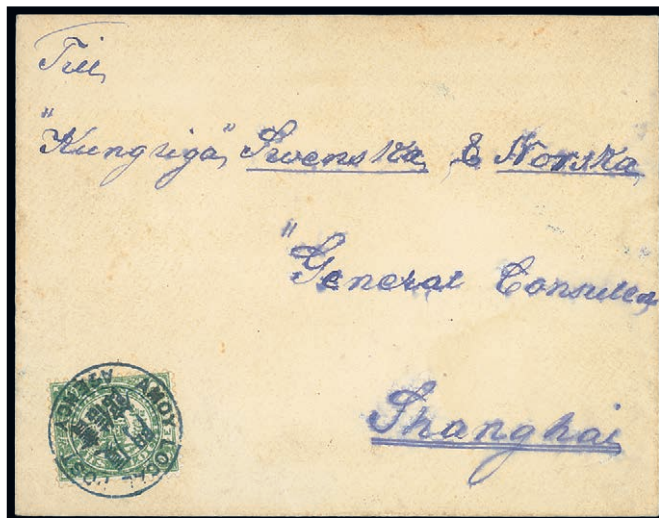 Till
"Kungliga" Swenska & Norska
"General Consulen
Shanghai
AMOY LOCAL POST
AGENCY
廈門